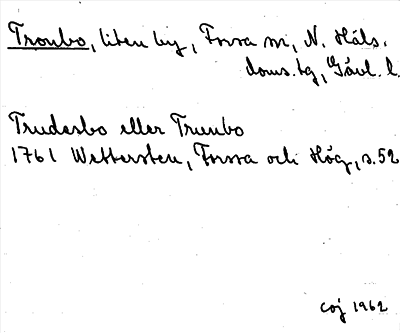 Trombo, liten by, Forsa sn, N. Häls.
doms.tg, Gävl. l.
Trudesbo eller Trumbo
1761 Wettersten, Forssa och Hög, s. 52
coj 1962